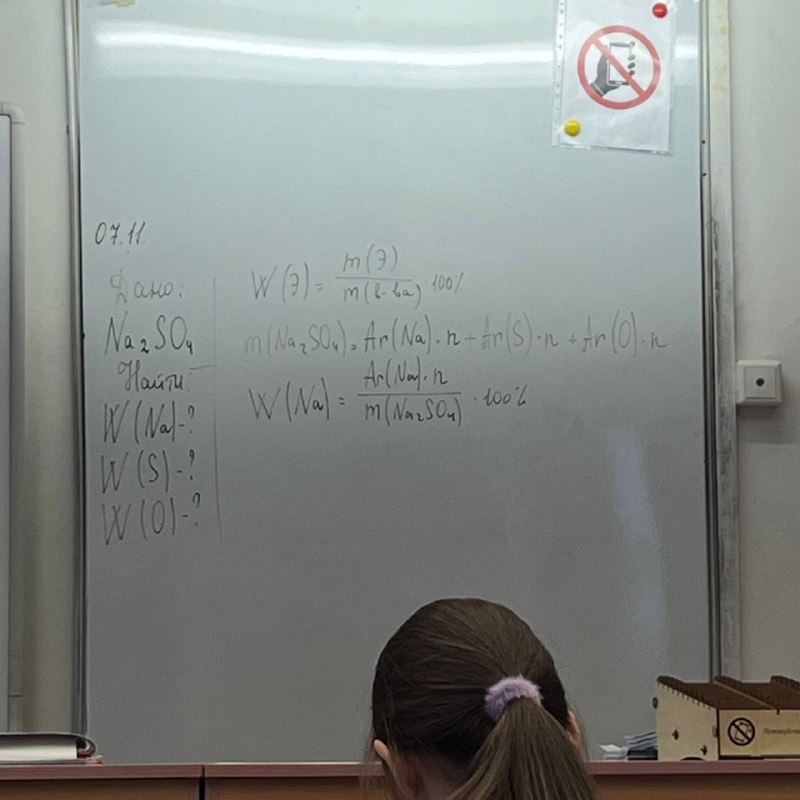 07.11.
Дано:
Na₂SO₄
Найти:
W(Na)-?
W(S)-?
W(O)-?
W(Э) = m(Э) / m(в-ва) · 100%
m(Na₂SO₄) = Ar(Na)·n + Ar(S)·n + Ar(O)·n
W(Na) = Ar(Na)·n / m(Na₂SO₄) · 100%